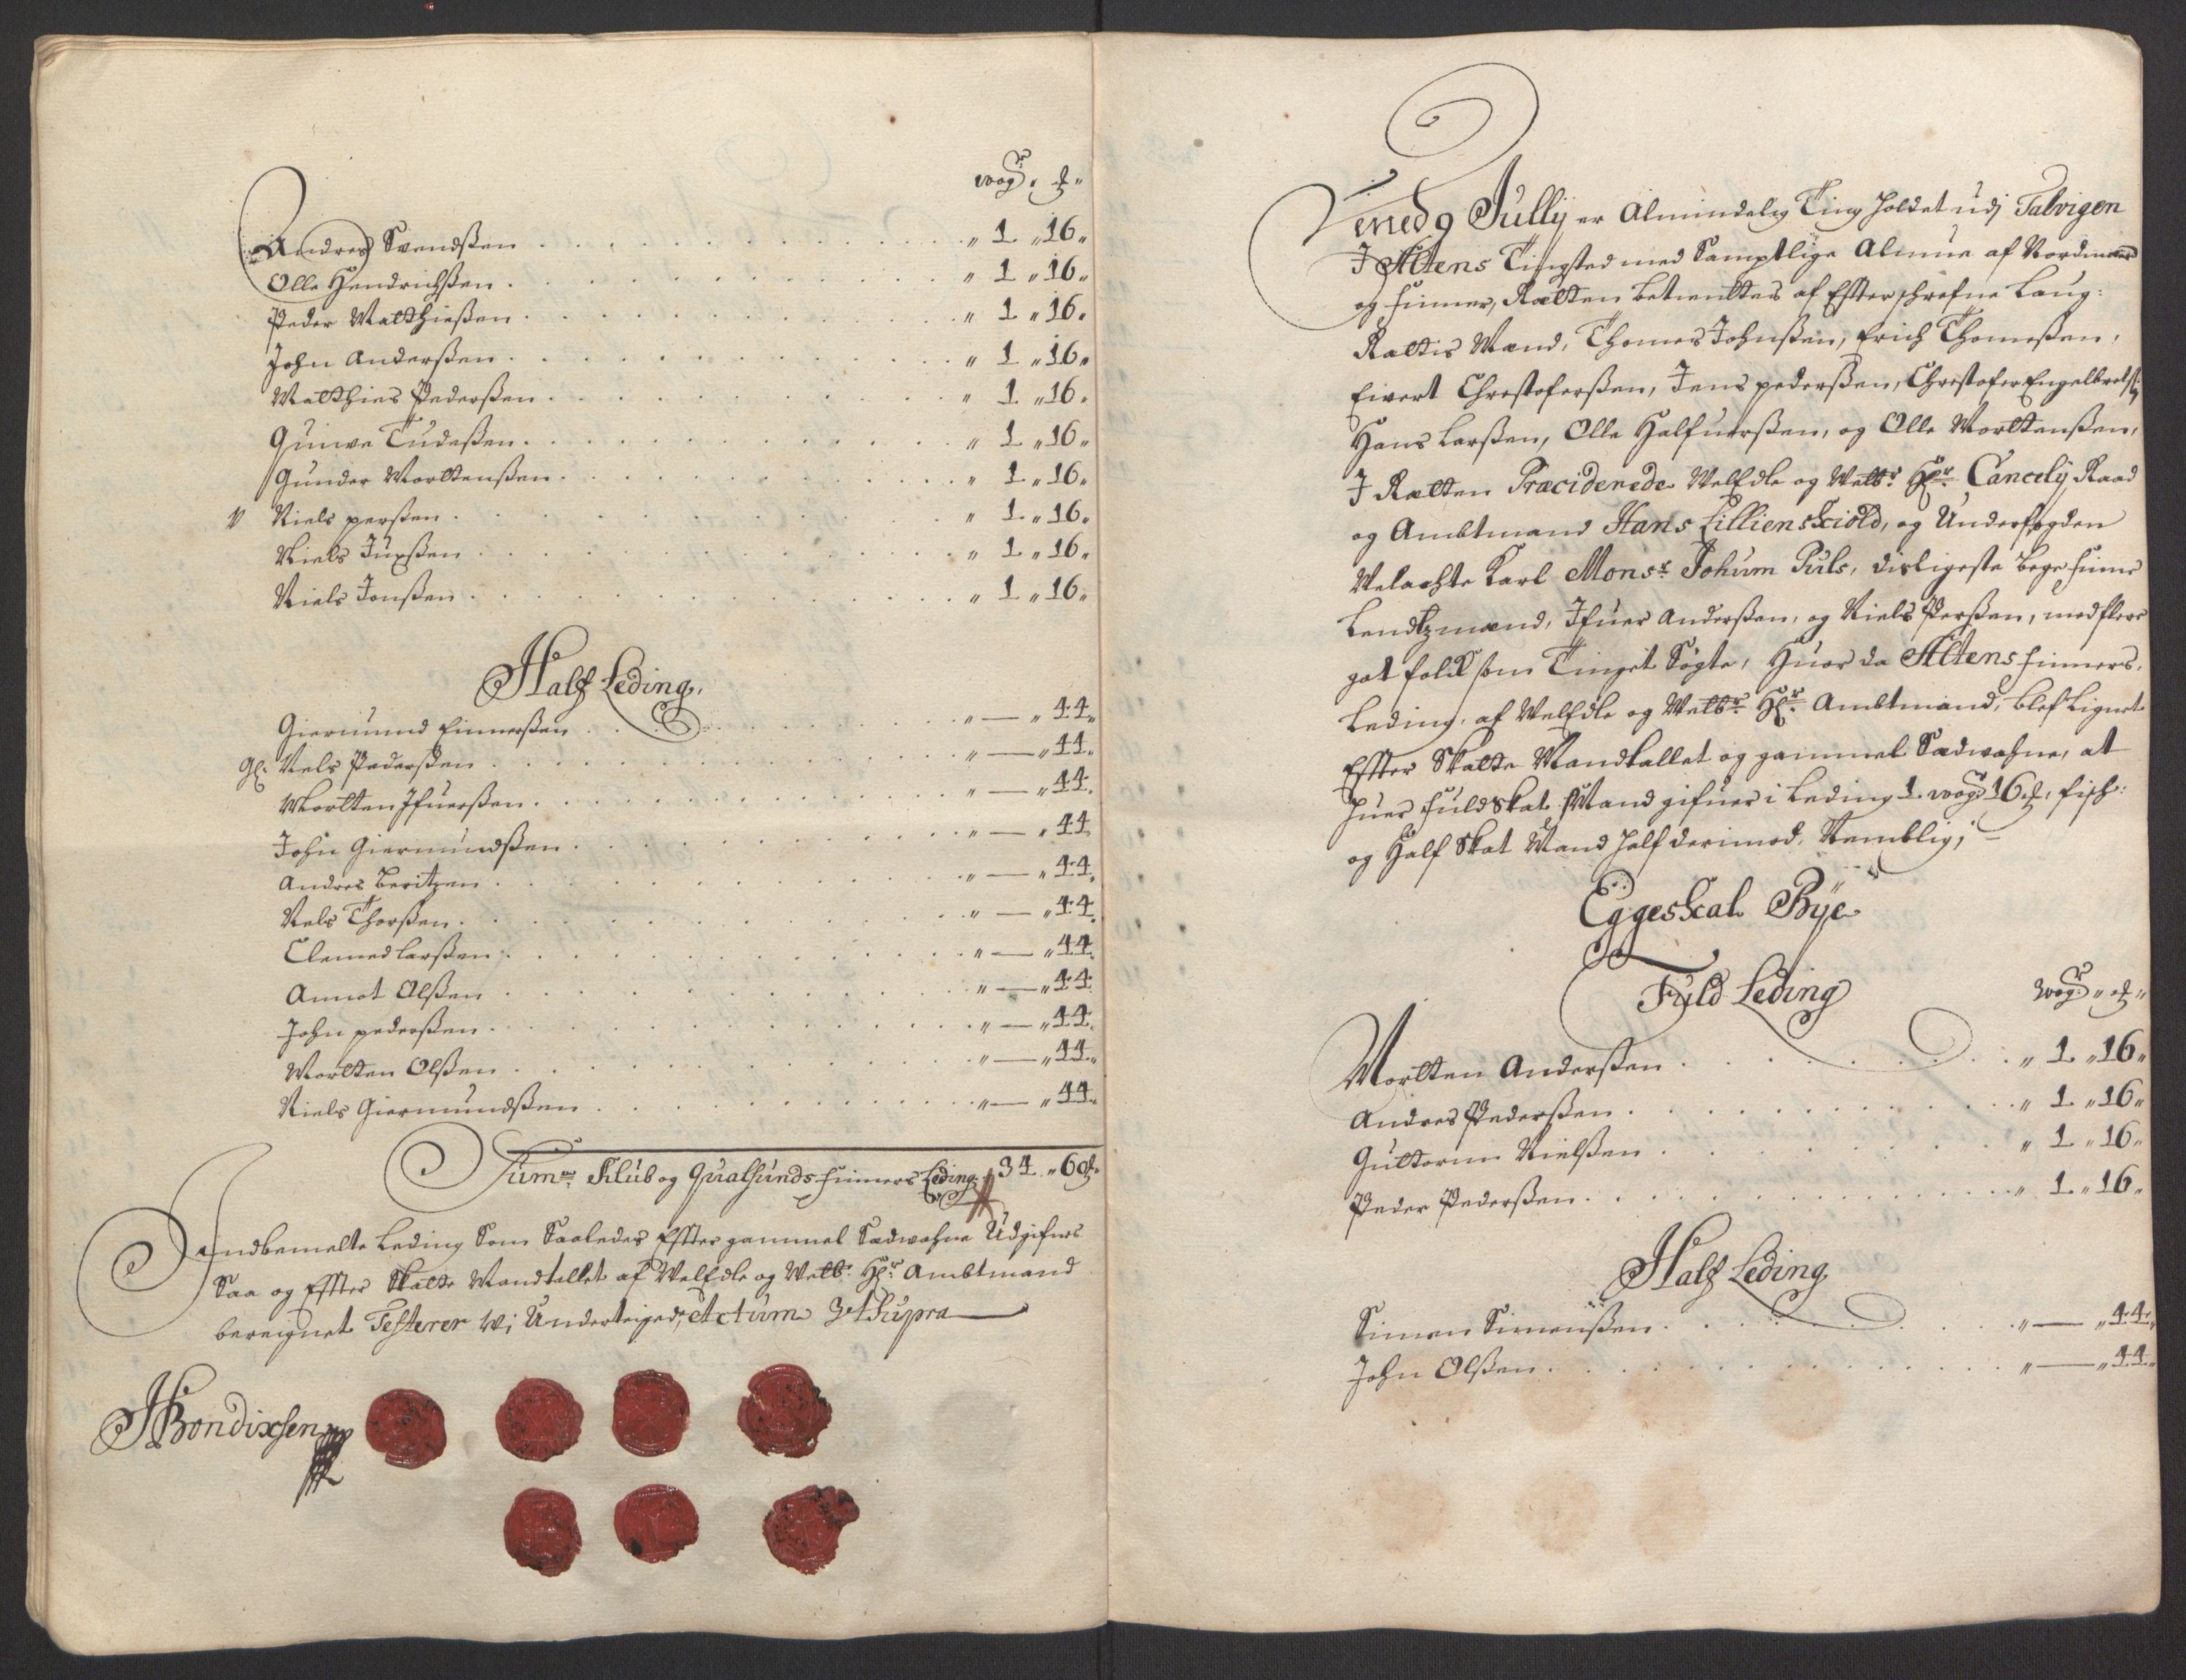 wogr: „ ℔ „
Andres Svendsßen . . . „ 1 „ 16 „
Olle Hendrichsßen . . . „ 1 „ 16 „
Peder Matthießen . . . „ 1 „ 16 „
John Anderßen . . . „ 1 „ 16 „
Matthies Pederßen . . . „ 1 „ 16 „
Quiwe Tudeßen . . . „ 1 „ 16 „
Gunder Morttenßen . . . „ 1 „ 16 „
Niels perßen . . . „ 1 „ 16 „
Niels Juxßen . . . „ 1 „ 16 „
Niels Jonßen . . . „ 1 „ 16 „
Half Leding
Giermund Einnerßen . . . „ — „ 44 „
Gl: Nels Pederßen . . . „ — „ 44 „
Mortten Ifuerßen . . . „ — „ 44 „
John Giermundßen . . . „ — „ 44
Andres Beritzen . . . „ — „ 44 „
Nels Thorßen . . . „ — „ 44 „
Clemed Larßen . . . „ — „ 44 „
Annot Olßen . . . „ — „ 44
John pederßen . . . „ — „ 44 „
Mortten Olßen . . . „ — „ 44 „
Niels Giermundßen . . . „ — „ 44 „
Summa Klub og Qualsunds finners Leding 34 „ 60 ℔
Indbemelte Leding Som Saaledes Effter gammel Sædwahne Udgifues
Saa og Effter Skatte Mandtallet af WelEdle og Welb: Hr: Ambtmand
beregnet Testerer wj Underteigned, Actum Ut Supra
HBondixsen
Venned 9 Jullÿ er Almindelig Ting holdet udj Talvigen
J Altens Tingsted med Samptlige Almue af Nordmænd
og finner, Rætten betienttes af Effterschrefne Laug:
Rættis Mænd, Thomes Johnßen, Erich Thomeßen,
Eivert Christoferßen, Jens pederßen, Christofer Engelbretß:
Hans Larßen, Olle Halfuerßen, og Olle Morttenßen,
J Rætten Præciderede WelEdle og Welbr: Hr: Cancelÿ Raad
og Ambtmand Hans Lilliensciold, og Underfogden
Velachte Karl Monsr: Johum Puls, disligeste Bege finne
Lendtzmænd, Ifuer Anderßen, og Niels Perßen, med flere
got folck som Tinget Søgte, Huor da Altens finners
Leding, af WelEdle og Welbr: Hr: Ambtmand, blef Lignet
Effter Skatte Mandtallet og gammel Sædwahne, at
huer fuldskat Mand gifuer i Leding 1 wog: 16 ℔, fisch:
og Half Skat Mand half derimod, Nemblig;
Eggeskal Bÿe
Fuld Leding
wogr: „ ℔ „
Mortten Anderßen . . . „ 1 „ 16 „
Andres Pederßen . . . „ 1 „ 16 „
Guttorm Nielßen . . . „ 1 „ 16 „
Peder Pederßen . . . „ 1 „ 16 „
Half Leding
Simen Simenßen . . . „ — „ 44 „
John Olßen . . . „ — „ 44 „